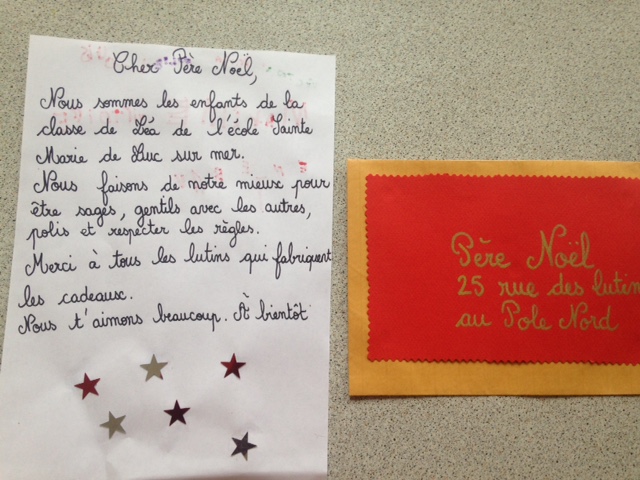 Cher Père Noël,
Nous sommes les enfants de la
classe de Léa de l'école Sainte
Marie de Luc sur mer.
Nous faisons de notre mieux pour
être sages, gentils avec les autres,
polis et respecter les règles.
Merci à tous les lutins qui fabriquent
les cadeaux.
Nous t'aimons beaucoup. À bientôt
Père Noël
25 rue des lutin
au Pole Nord